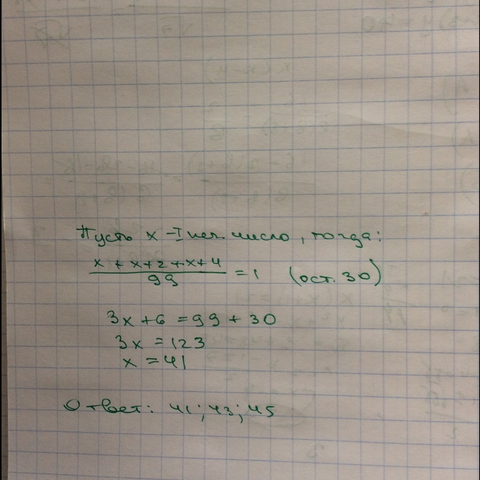 Пусть x - I неч. число, тогда:
x + x+2 + x+4
99
= 1 (ост. 30)
3x + 6 = 99 + 30
3x = 123
x = 41
Ответ: 41; 43; 45